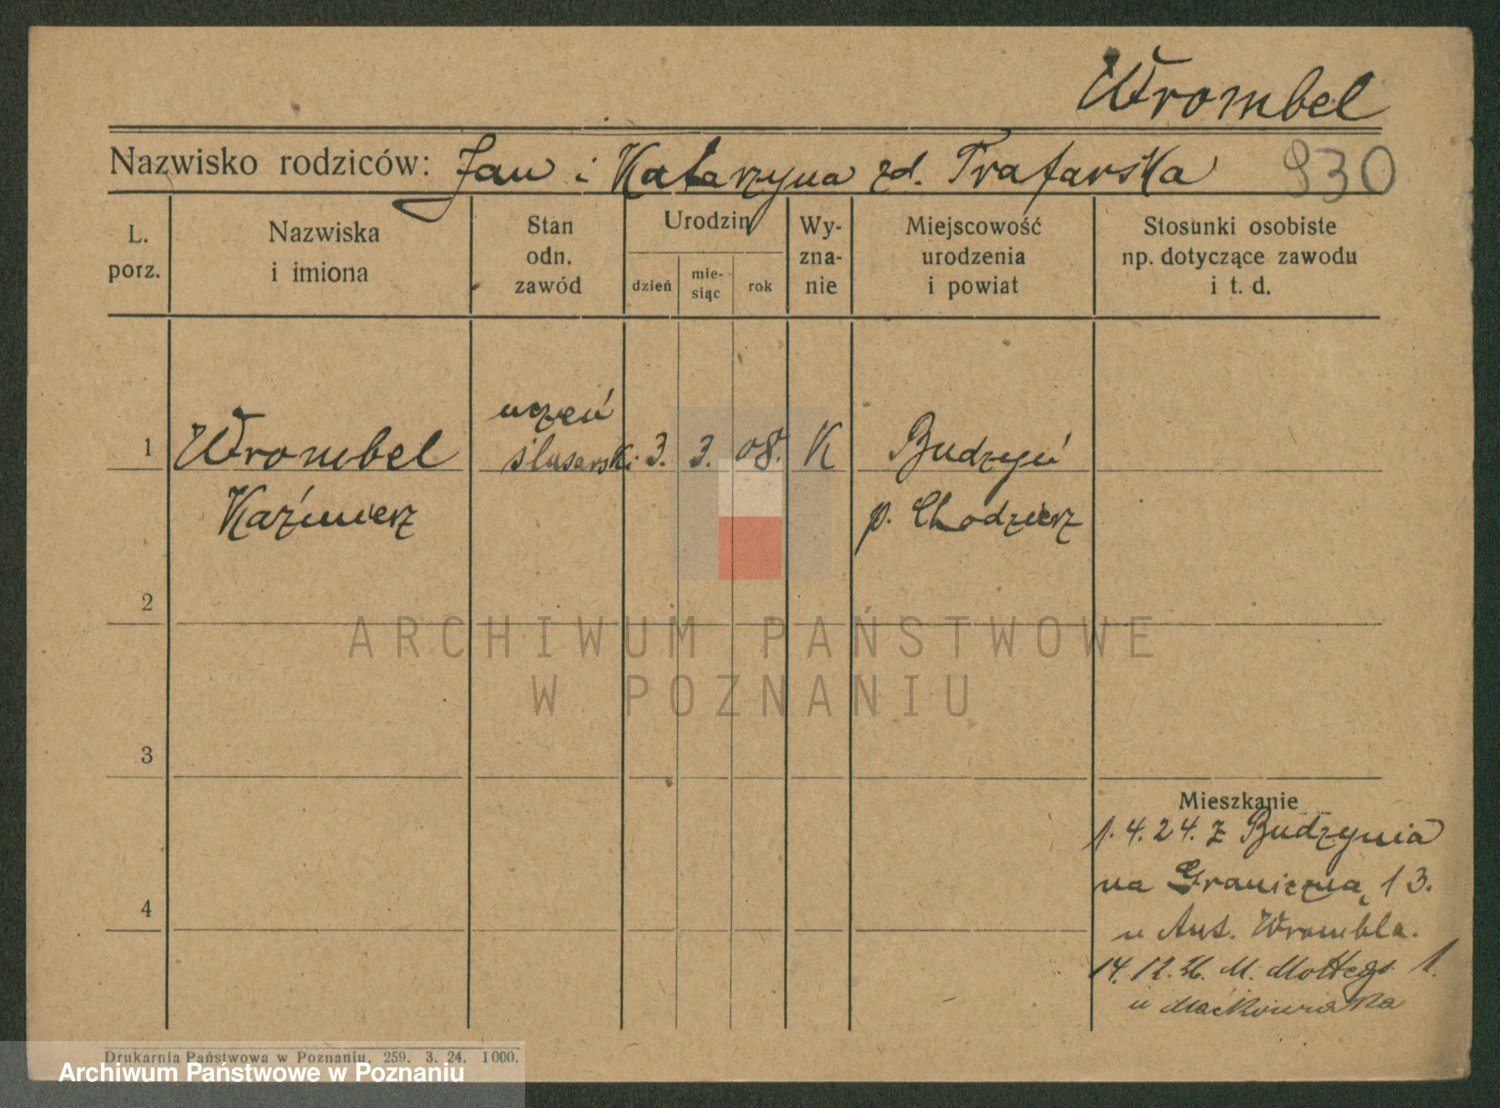 Wrombel
Nazwisko rodziców: Jan i Katarzyna zd. Trafarska 930
L. porz.
Nazwiska i imiona
Stan odn. zawód
Urodzin
dzień
mie-siąc
rok
Wy-zna-nie
Miejscowość urodzenia i powiat
Stosunki osobiste np. dotyczące zawodu i t. d.
uczeń
1 Wrombel ślusarski 3. 3. 08. K Budzyń
Kaźmierz p. Chodzierz
2
ARCHIWUM PAŃSTWOWE
W POZNANIU
3
Mieszkanie
1.4.24. z Budzynia
na Graniczną 13.
4
u Ant. Wrombla.
14.12.26. M. Mottego 1.
u Maćkowiaka
Drukarnia Państwowa w Poznaniu. 259. 3. 24. 1000.
Archiwum Państwowe w Poznaniu